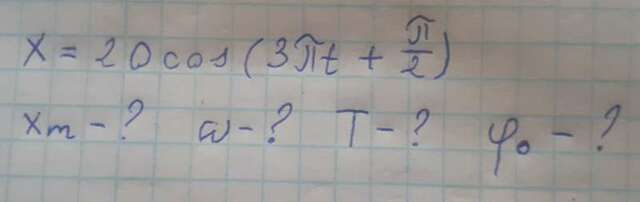 x = 20 cos (3πt + π/2)
xm - ? ω - ? T - ? φ₀ - ?